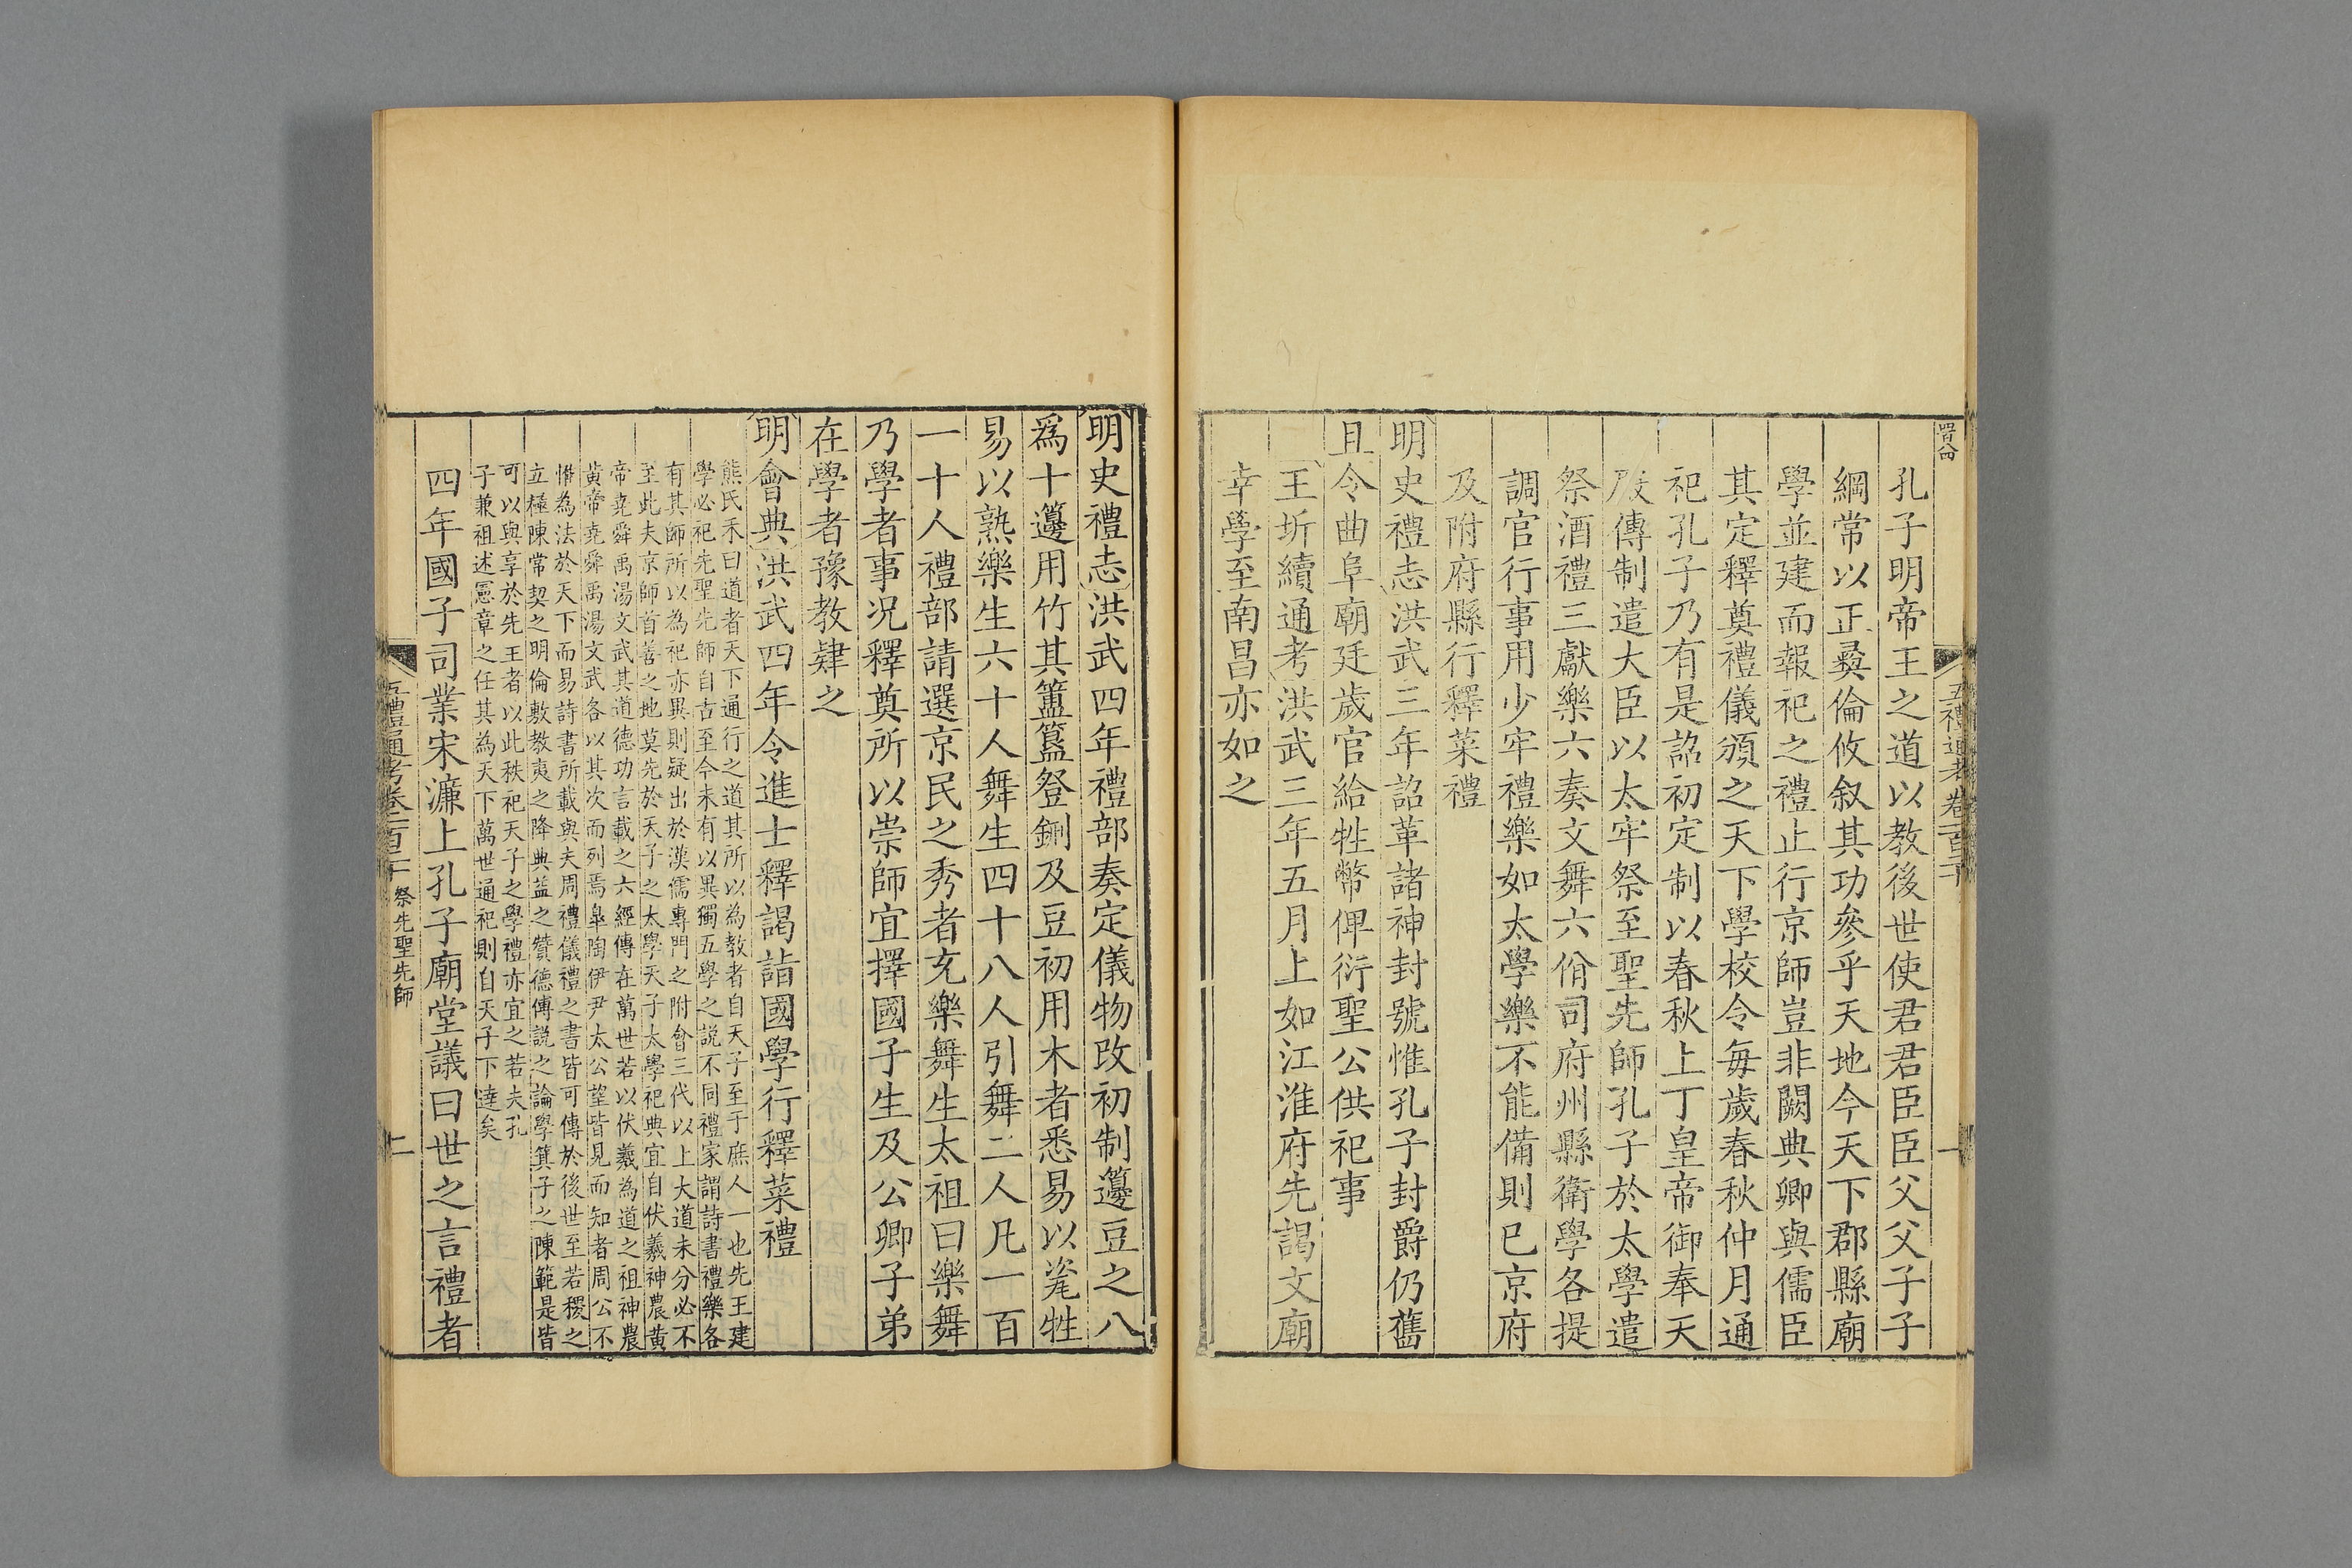 孔子明帝王之道以教後世使君君臣臣父父子子
綱常以正彛倫攸叙其功參乎天地今天下郡縣廟
學並建而報祀之禮止行京師豈非闕典卿與儒臣
其定釋奠禮儀頒之天下學校令每歲春秋仲月通
祀孔子乃有是詔初定制以春秋上丁皇帝御奉天
殿傳制遣大臣以太牢祭至聖先師孔子於太學遣
祭酒禮三獻樂六奏文舞六佾司府州縣衛學各提
調官行事用少牢禮樂如太學樂不能備則已京府
及附府縣行釋菜禮
明史禮志洪武三年詔革諸神封號惟孔子封爵仍舊
且令曲阜廟廷歲官給牲幣俾衍聖公供祀事
王圻續通考洪武三年五月上如江淮府先謁文廟
幸學至南昌亦如之
明史禮志洪武四年禮部奏定儀物改初制籩豆之八
爲十籩用竹其簠簋登鉶及豆初用木者悉易以瓷牲
易以熟樂生六十人舞生四十八人引舞二人凡一百
一十人禮部請選京民之秀者充樂舞生太祖曰樂舞
乃學者事况釋奠所以崇師宜擇國子生及公卿子弟
在學者豫教肄之
明會典洪武四年令進士釋謁詣國學行釋菜禮
熊氏禾曰道者天下通行之道其所以為教者自天子至于庶人一也先王建
學必祀先聖先師自古至今未有以異獨五學之説不同禮家謂詩書禮樂各
有其師所以為祀亦異則疑出於漢儒專門之附會三代以上大道未分必不
至此夫京師首善之地莫先於天子之太學天子太學祀典宜自伏羲神農黄
帝堯舜禹湯文武其道德功言載之六經傳在萬世若以伏羲為道之祖神農
黄帝堯舜禹湯文武各以其次而列焉臯陶伊尹太公望皆見而知者周公不
惟為法於天下而易詩書所載與夫周禮儀禮之書皆可傳於後世至若稷之
立極陳常契之明倫敷教夷之降典益之贊德傳説之論學箕子之陳範是皆
可以與享於先王者以此秩祀天子之學禮亦宜之若夫孔
子兼祖述憲章之任其為天下萬世通祀則自天子下達矣
四年國子司業宋濂上孔子廟堂議曰世之言禮者
五禮通考卷一百二十 祭先聖先師 二